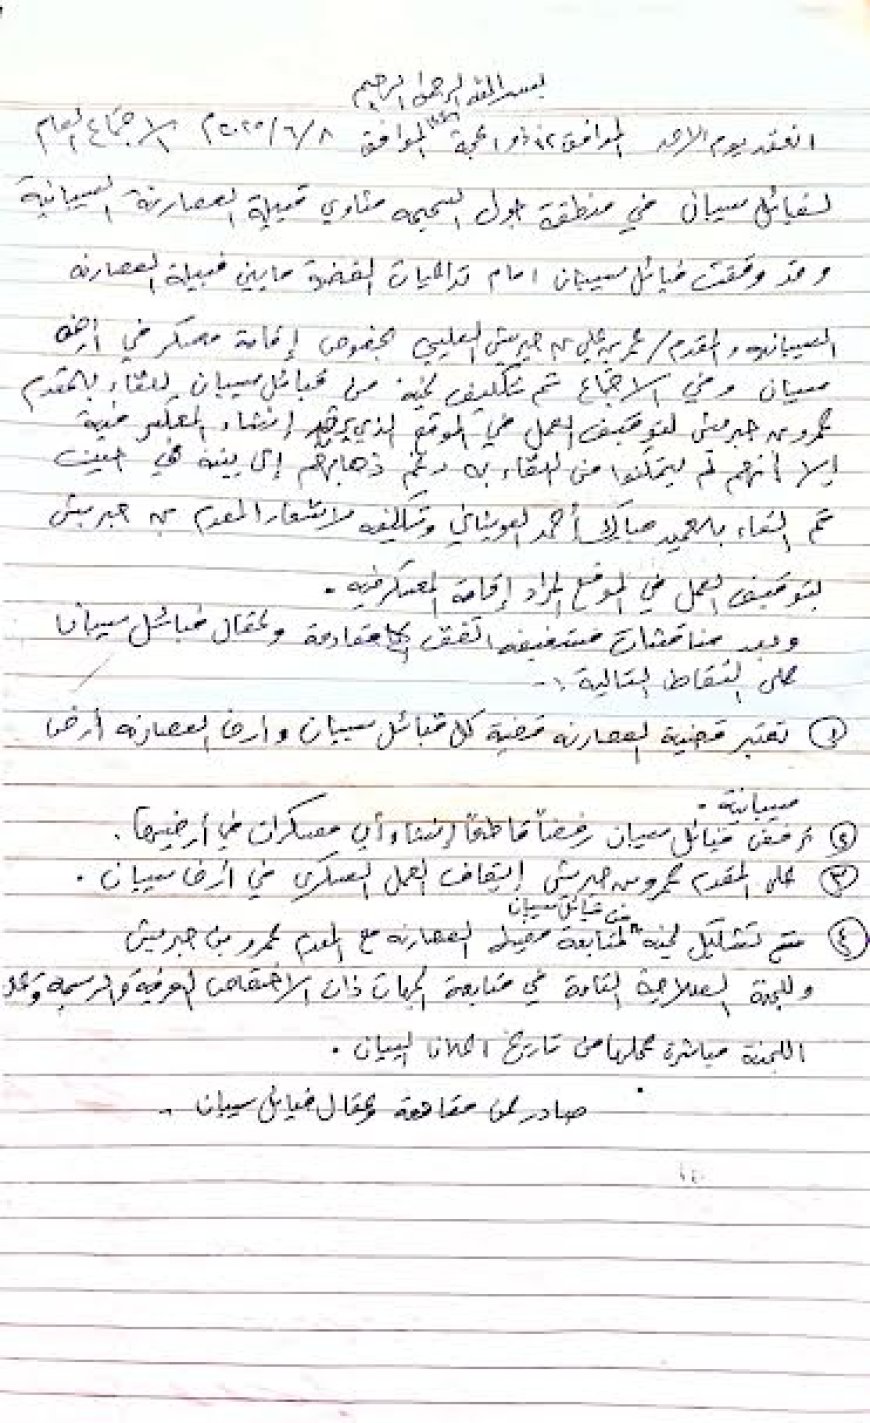 بسم الله الرحمن الرحيم
انعقد يوم الاحد الموافق ١٢ ذو الحجة ١٤٤٦ الموافق ٢٠٢٥/٦/٨م الاجتماع العام
لقبائل سيبان في منطقة جول السحيمه مثاوي قبيلة العصارنة السيبانية
وقد وقفت قبائل سيبان امام تداعيات القضية مابين قبيلة العصارنه
السيبانيه والمقدم/ عمر بن علي بن حبريش العليي بخصوص إقامة معسكر في أرض
سيبان وفي الاجتماع تم تكليف لجنة من قبائل سيبان للقاء بالمقدم
عمرو بن حبريش لتوقيف العمل في الموقع الذي إنشاء المعسكر فيه
إلا أنهم لم يتمكنوا من اللقاء به رغم ذهابهم إلى بيته في حين
تم اللقاء بالعميد مبارك أحمد العوبثاني وتكليفه لاشعار المقدم بن حبريش
بتوقيف العمل في الموقع المراد إقامة المعسكر فيه .
وبعد مناقشات مستفيضه اتفق المقادمة وعقال قبائل سيبان
على النقاط التالية :-
١ تعتبر قضية العصارنه قضية كل قبائل سيبان وارض العصارنه أرض
سيبانية .
٢ ترفض قبائل سيبان رفضاً قاطعاً إنشاء أي معسكرات في أرضيها .
٣ على المقدم عمرو بن حبريش إيقاف العمل العسكري في ارض سيبان .
٤ تم تشكيل لجنه من قبائل سيبان لمتابعة العصارنه مع المقدم عمرو بن حبريش
وللجنة الصلاحية التامة في متابعة الجهات ذات الاختصاص العرفية والرسمية وعلى
اللجنة مباشرة عملها من تاريخ اعلان البيان .
صادر عن مقادمة وعقال قبائل سيبان .